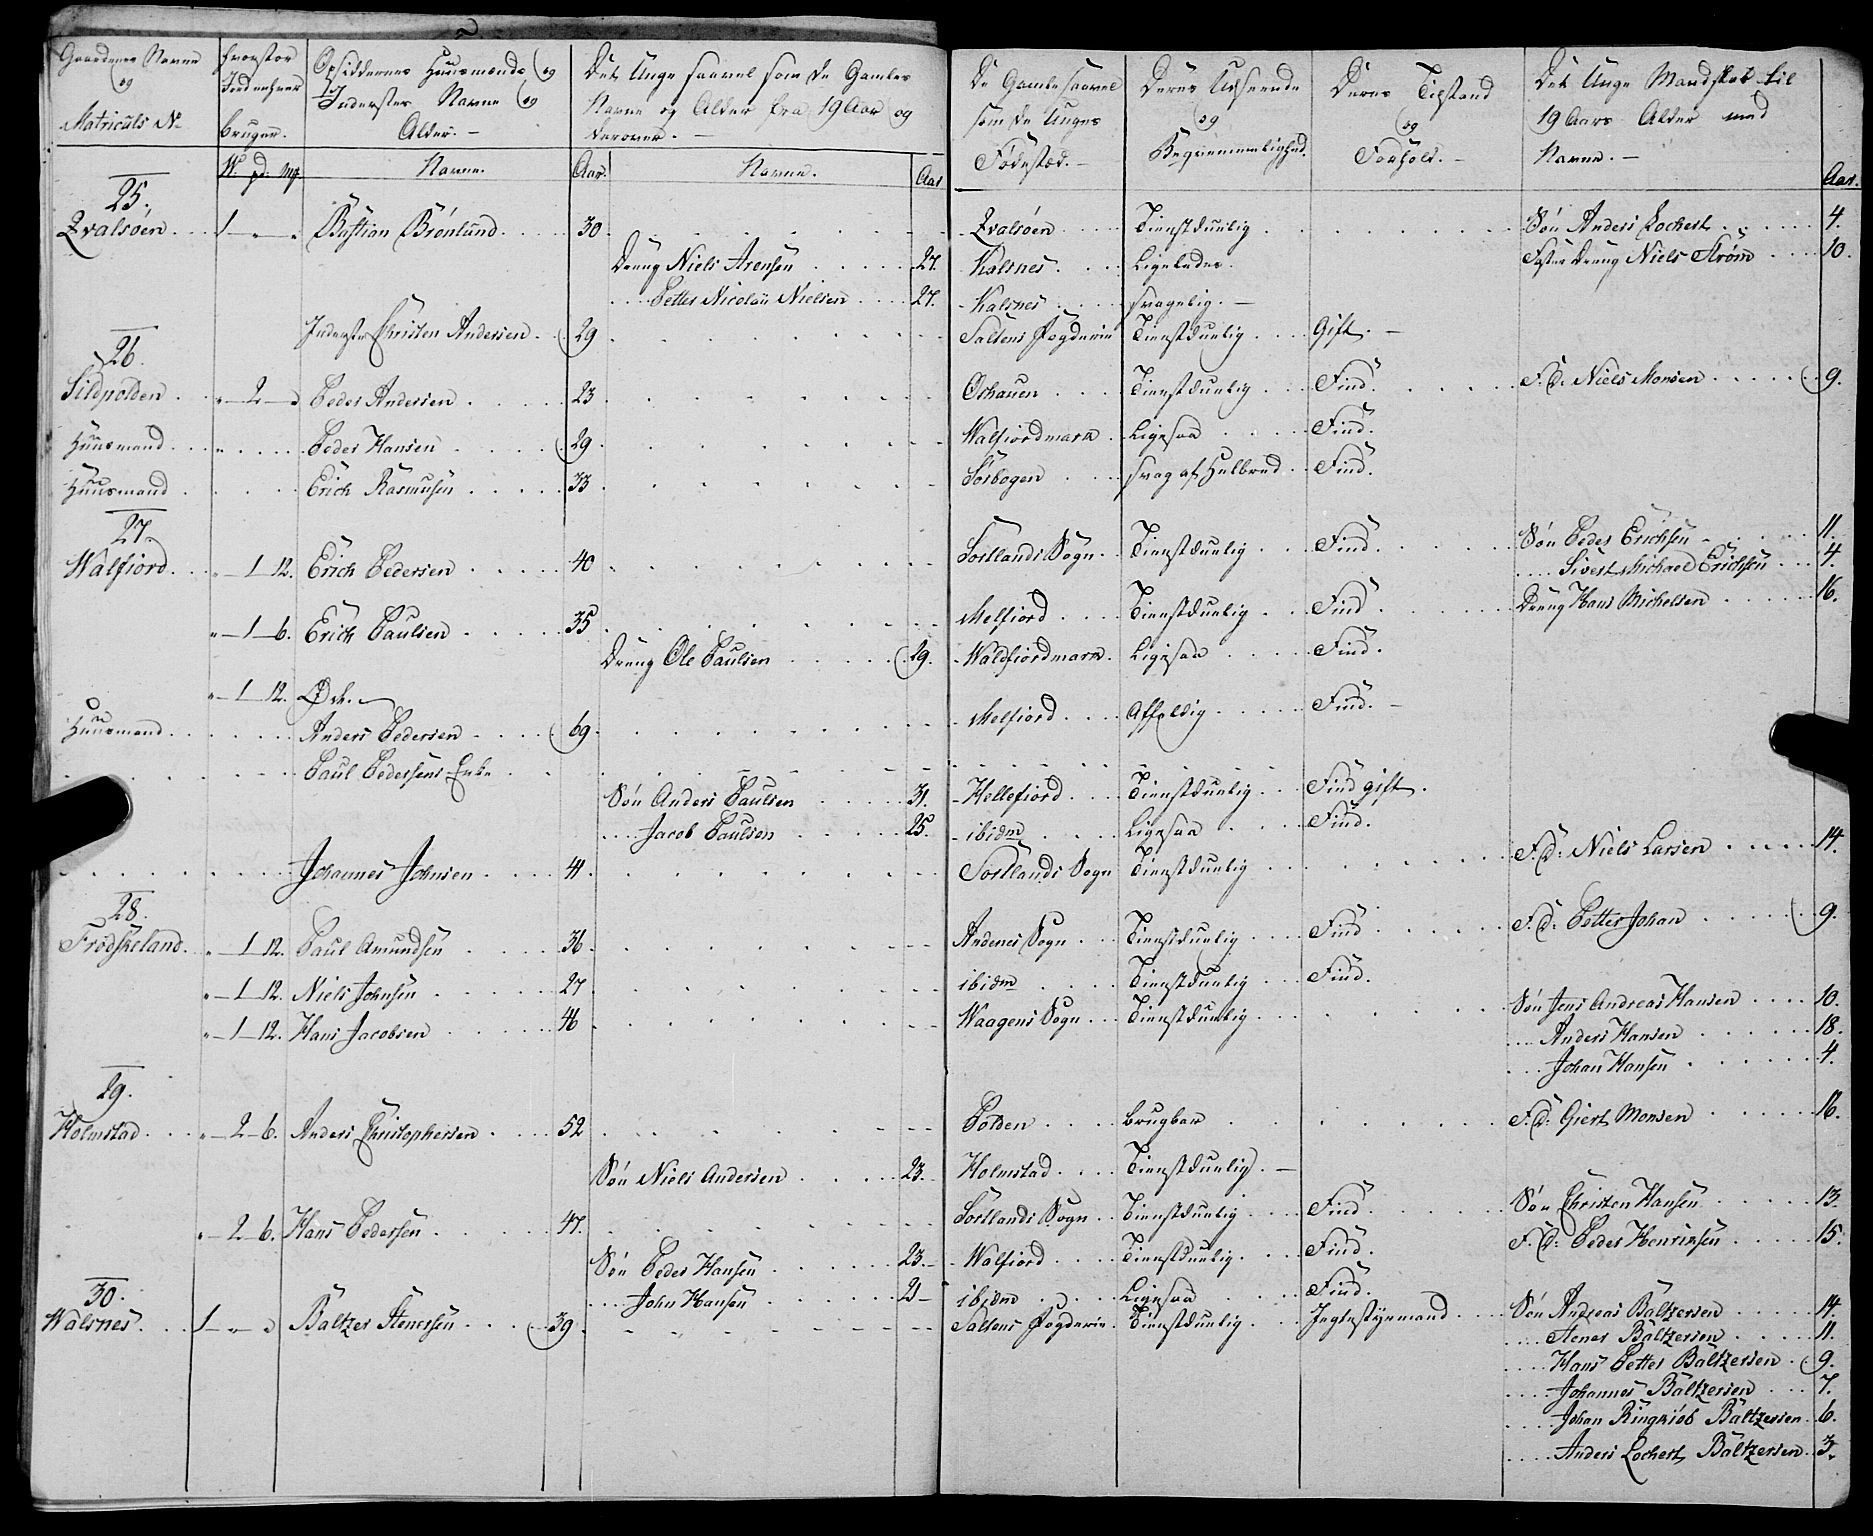 Gaardenes Navne og Matriculs No | hvorstor Jord enhver bruger. | Opsiddernes Huusmænds og Inderster Navne og Alder. – | Det Unge saavel som de Gamles Navne og Alder fra 19 Aar og derover. – | De Gamle saavel som de Unges Fødested. – | Deres Udseende og Beqvemmelighed. | Deres Tilstand og Forhold. – | Det Unge Mandskab til 19 Aars Alder med Navne. –
W. pd: mg. | Navne. | Aar. | Navne. | Aar | Aar.
25.
Qvalsöen 1 " " Bastian Brönlund 30. Qvalsöen Tienstduelig Sön Anders Lochert 4.
Dreng Niels Arensen 27. Kalsnes Ligeledes. Foster Dreng Niels Strøm 10.
Petter Nicolai Nielsen 27. Kalsnes svagelig. –
Inderster Christen Andersen 29 Saltens Fogderie Tienstduelig Gift. –
26.
Sildpolden " 2 " Peder Andersen 23 Oshauen Tienstduelig Find. F. d: Niels Monsen 9.
Huusmand Peder Hansen 29 Walfiordmark Ligesaa Find.
Huusmand Erich Rasmusen 33 Sörbogen svag af Helbred Find.
27.
Walfiord " 1 12. Erich Pedersen 40 Sortlands Sogn Tienstduelig Find. Sön Peder Erichsen 11.
Sivert Michael Erichsen 4.
" 1 6. Erich Paulsen 35 Melfiord Tienstduelig Find. Dreng Hans Michelsen 16.
Dreng Ole Paulsen 29. Waldfiordmark Ligesaa Find.
" 1 12. Øde.
Huusmand Anders Pedersen 69 Melfiord Affældig Find. –
Paul Pedersens Enke
Sön Anders Paulsen 31. Hellefiord Tienstduelig Find gift.
Jacob Paulsen 25. ibidm Ligesaa Find.
Johannes Johnsen 41. Sortlands Sogn Tienstduelig F. d: Niels Larsen 14.
28.
Frödskeland " 1 12. Paul Amundsen 36 Andenes Sogn Tienstduelig Find F. d: Petter Johan 9.
" 1 12. Niels Johnsen 27 ibidm Tienstduelig Find.
" 1 12. Hans Jacobsen 46 Waagens Sogn Tienstduelig Sön Jens Andreas Hansen 10.
Anders Hansen 18.
Johan Hansen 4.
29.
Holmstad " 2 6. Anders Christophersen 52 Polden brugbar F. d: Giert Monsen 16.
Sön Niels Andersen 23. Holmstad Tienstduelig. –
" 2 6. Hans Pedersen 47. Sortlands Sogn Tienstduelig Find. Sön Christen Hansen 13.
Sön Peder Hansen 23. Walfiord Tienstduelig Find. F. d: Peder Henrichsen 15.
John Hansen 21 ibidm Ligesaa Find.
30.
Walsnes 1 " " Baltzer Stenersen 39 Saltens Fogderie Tienstduelig Jægtestyrmand Sön Andreas Baltzersen 14.
Stener Baltzersen 11.
Hans Petter Baltzersen 9.
Johannes Baltzersen 7.
Johan Ringkiöb Baltzersen 6.
Anders Lochert Baltzersen 3.